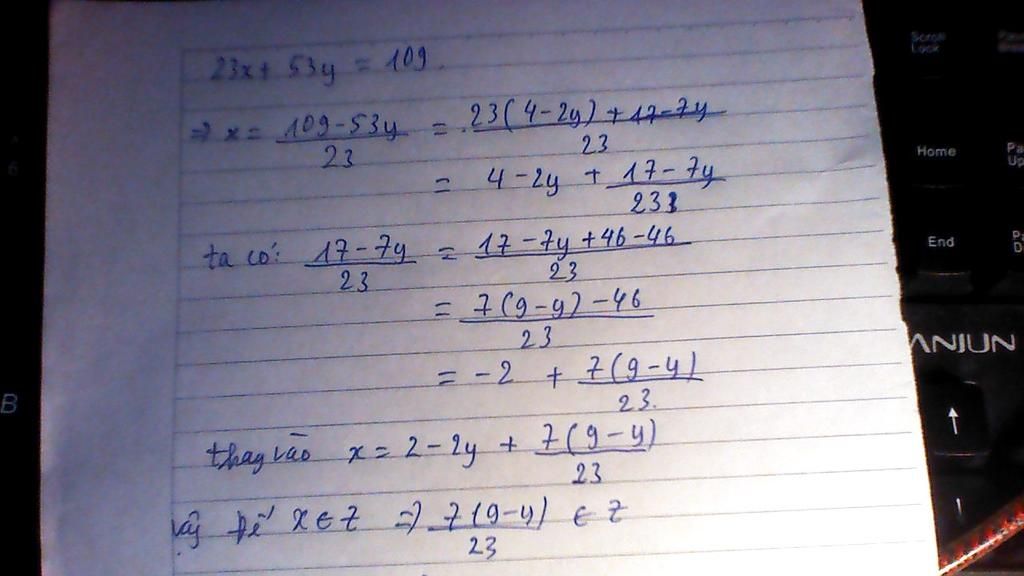 23x + 53y = 109.
⇒ x = (109 - 53y)/23 = (23(4 - 2y) + 17 - 7y)/23
= 4 - 2y + (17 - 7y)/23
ta có: (17 - 7y)/23 = (17 - 7y + 46 - 46)/23
= (7(9 - y) - 46)/23
= -2 + 7(9 - y)/23.
thay vào x = 2 - 2y + 7(9 - y)/23
vậy để x ∈ Z ⇒ 7(9 - y)/23 ∈ Z
Scroll Lock
Home
End
ANJUN
B